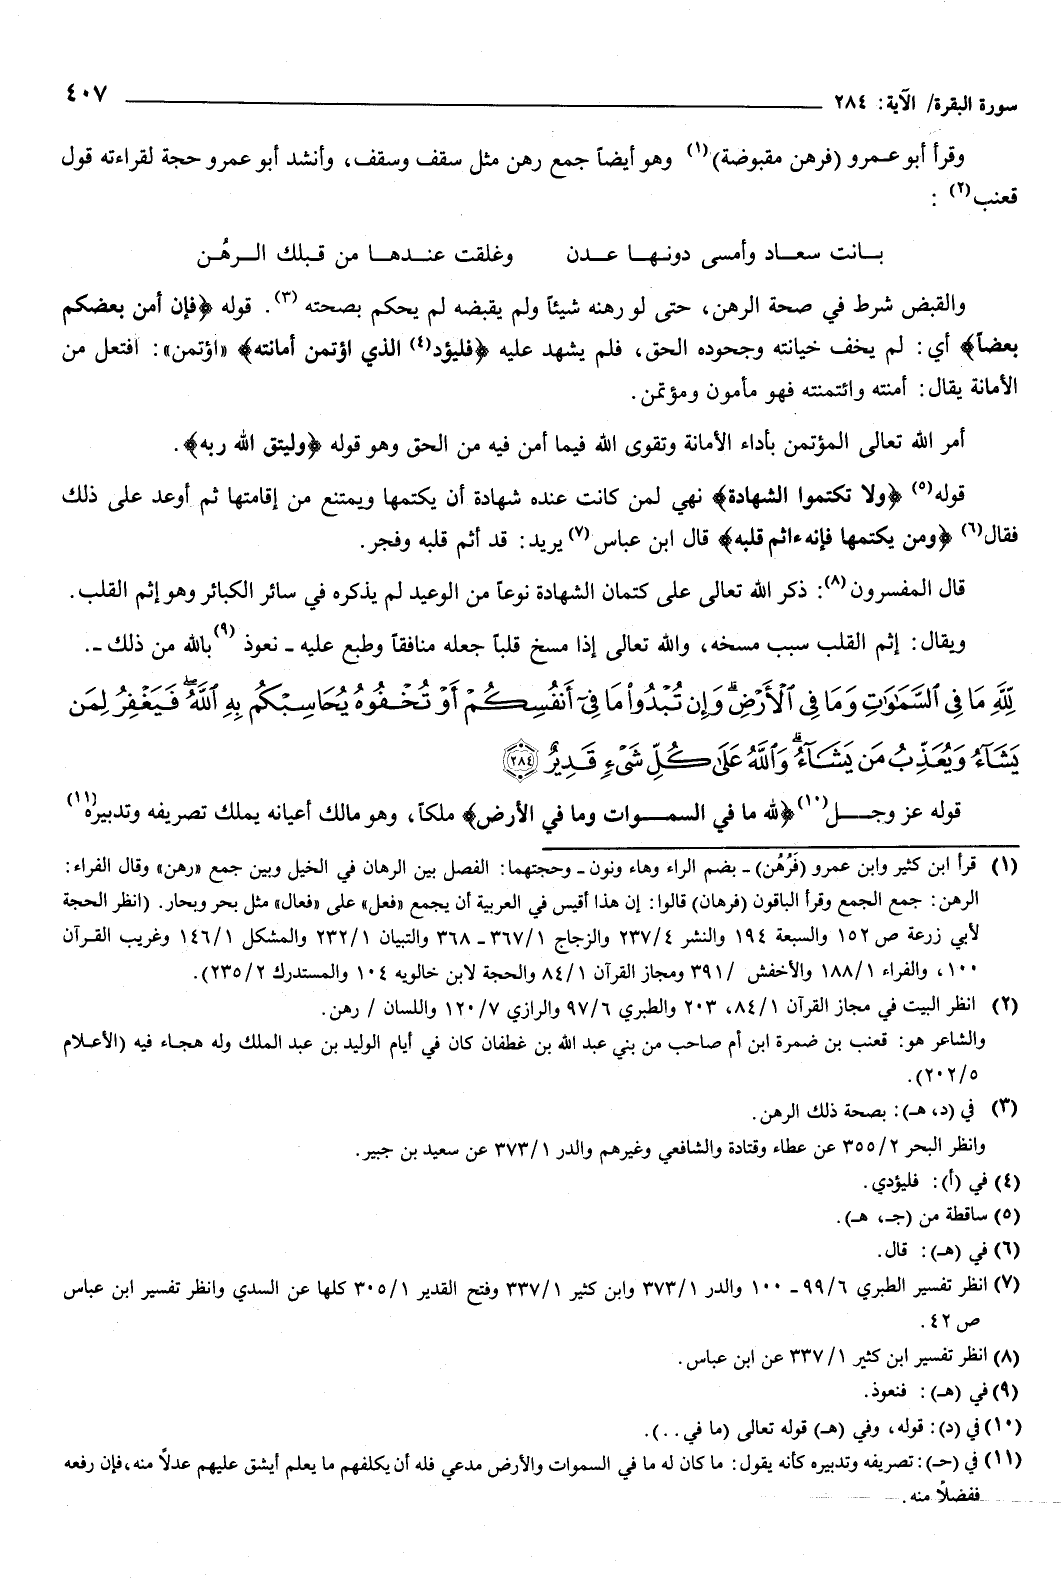 سورة البقرة/ الآية: ٢٨٤
٤٠٧
وقرأ أبو عمرو (فرهن مقبوضة)(١) وهو أيضاً جمع رهن مثل سقف وسقف، وأنشد أبو عمرو حجة لقراءته قول
قعنب(٢) :
بانت سعاد وأمسى دونها عدن وغلقت عندها من قبلك الرهُن
والقبض شرط في صحة الرهن، حتى لو رهنه شيئاً ولم يقبضه لم يحكم بصحته(٣). قوله ﴿فإن أمن بعضكم
بعضاً﴾ أي: لم يخف خيانته وجحوده الحق، فلم يشهد عليه ﴿فليؤد(٤) الذي اؤتمن أمانته﴾ «اؤتمن»: افتعل من
الأمانة يقال: أمنته وائتمنته فهو مأمون ومؤتمن.
أمر الله تعالى المؤتمن بأداء الأمانة وتقوى الله فيما أمن فيه من الحق وهو قوله ﴿وليتق الله ربه﴾.
قوله(٥) ﴿ولا تكتموا الشهادة﴾ نهي لمن كانت عنده شهادة أن يكتمها ويمتنع من إقامتها ثم أوعد على ذلك
فقال(٦) ﴿ومن يكتمها فإنه ءاثم قلبه﴾ قال ابن عباس(٧) يريد: قد أثم قلبه وفجر.
قال المفسرون(٨): ذكر الله تعالى على كتمان الشهادة نوعاً من الوعيد لم يذكره في سائر الكبائر وهو إثم القلب.
ويقال: إثم القلب سبب مسخه، والله تعالى إذا مسخ قلباً جعله منافقاً وطبع عليه ـ نعوذ(٩) بالله من ذلك ـ.
لِّلَّهِ مَا فِي السَّمَٰوَٰتِ وَمَا فِي الْأَرْضِ ۗ وَإِن تُبْدُوا۟ مَا فِىٓ أَنفُسِكُمْ أَوْ تُخْفُوهُ يُحَاسِبْكُم بِهِ اللَّهُ ۖ فَيَغْفِرُ لِمَن
يَشَآءُ وَيُعَذِّبُ مَن يَشَآءُ ۗ وَاللَّهُ عَلَىٰ كُلِّ شَىْءٍ قَدِيرٌ ٢٨٤
قوله عز وجل(١٠) ﴿لله ما في السموات وما في الأرض﴾ ملكاً، وهو مالك أعيانه يملك تصريفه وتدبيره(١١)
(١) قرأ ابن كثير وابن عمرو (فَرُهُن) ـ بضم الراء وهاء ونون ـ وحجتهما: الفصل بين الرهان في الخيل وبين جمع «رهن» وقال الفراء:
الرهن: جمع الجمع وقرأ الباقون (فرهان) قالوا: إن هذا أقيس في العربية أن يجمع «فعل» على «فعال» مثل بحر وبحار. (انظر الحجة
لأبي زرعة ص ١٥٢ والسبعة ١٩٤ والنشر ٢٣٧/٤ والزجاج ٣٦٧/١ ـ ٣٦٨ والتبيان ٢٣٢/١ والمشكل ١٤٦/١ وغريب القرآن
١٠٠، والفراء ١٨٨/١ والأخفش /٣٩١ ومجاز القرآن ٨٤/١ والحجة لابن خالويه ١٠٤ والمستدرك ٢٣٥/٢).
(٢) انظر البيت في مجاز القرآن ٨٤/١، ٢٠٣ والطبري ٩٧/٦ والرازي ١٢٠/٧ واللسان / رهن.
والشاعر هو: قعنب بن ضمرة ابن أم صاحب من بني عبد الله بن غطفان كان في أيام الوليد بن عبد الملك وله هجاء فيه (الأعلام
٢٠٢/٥).
(٣) في (د، هـ): بصحة ذلك الرهن.
وانظر البحر ٣٥٥/٢ عن عطاء وقتادة والشافعي وغيرهم والدر ٣٧٣/١ عن سعيد بن جبير.
(٤) في (أ): فليؤدي.
(٥) ساقطة من (جـ، هـ).
(٦) في (هـ): قال.
(٧) انظر تفسير الطبري ٩٩/٦ ـ ١٠٠ والدر ٣٧٣/١ وابن كثير ٣٣٧/١ وفتح القدير ٣٠٥/١ كلها عن السدي وانظر تفسير ابن عباس
ص ٤٢.
(٨) انظر تفسير ابن كثير ٣٣٧/١ عن ابن عباس.
(٩) في (هـ): فنعوذ.
(١٠) في (د): قوله، وفي (هـ) قوله تعالى (ما في..).
(١١) في (حـ): تصريفه وتدبيره كأنه يقول: ما كان له ما في السموات والأرض مدعي فله أن يكلفهم ما يعلم أيشق عليهم عدلاً منه، فإن رفعه
ففضلاً منه.